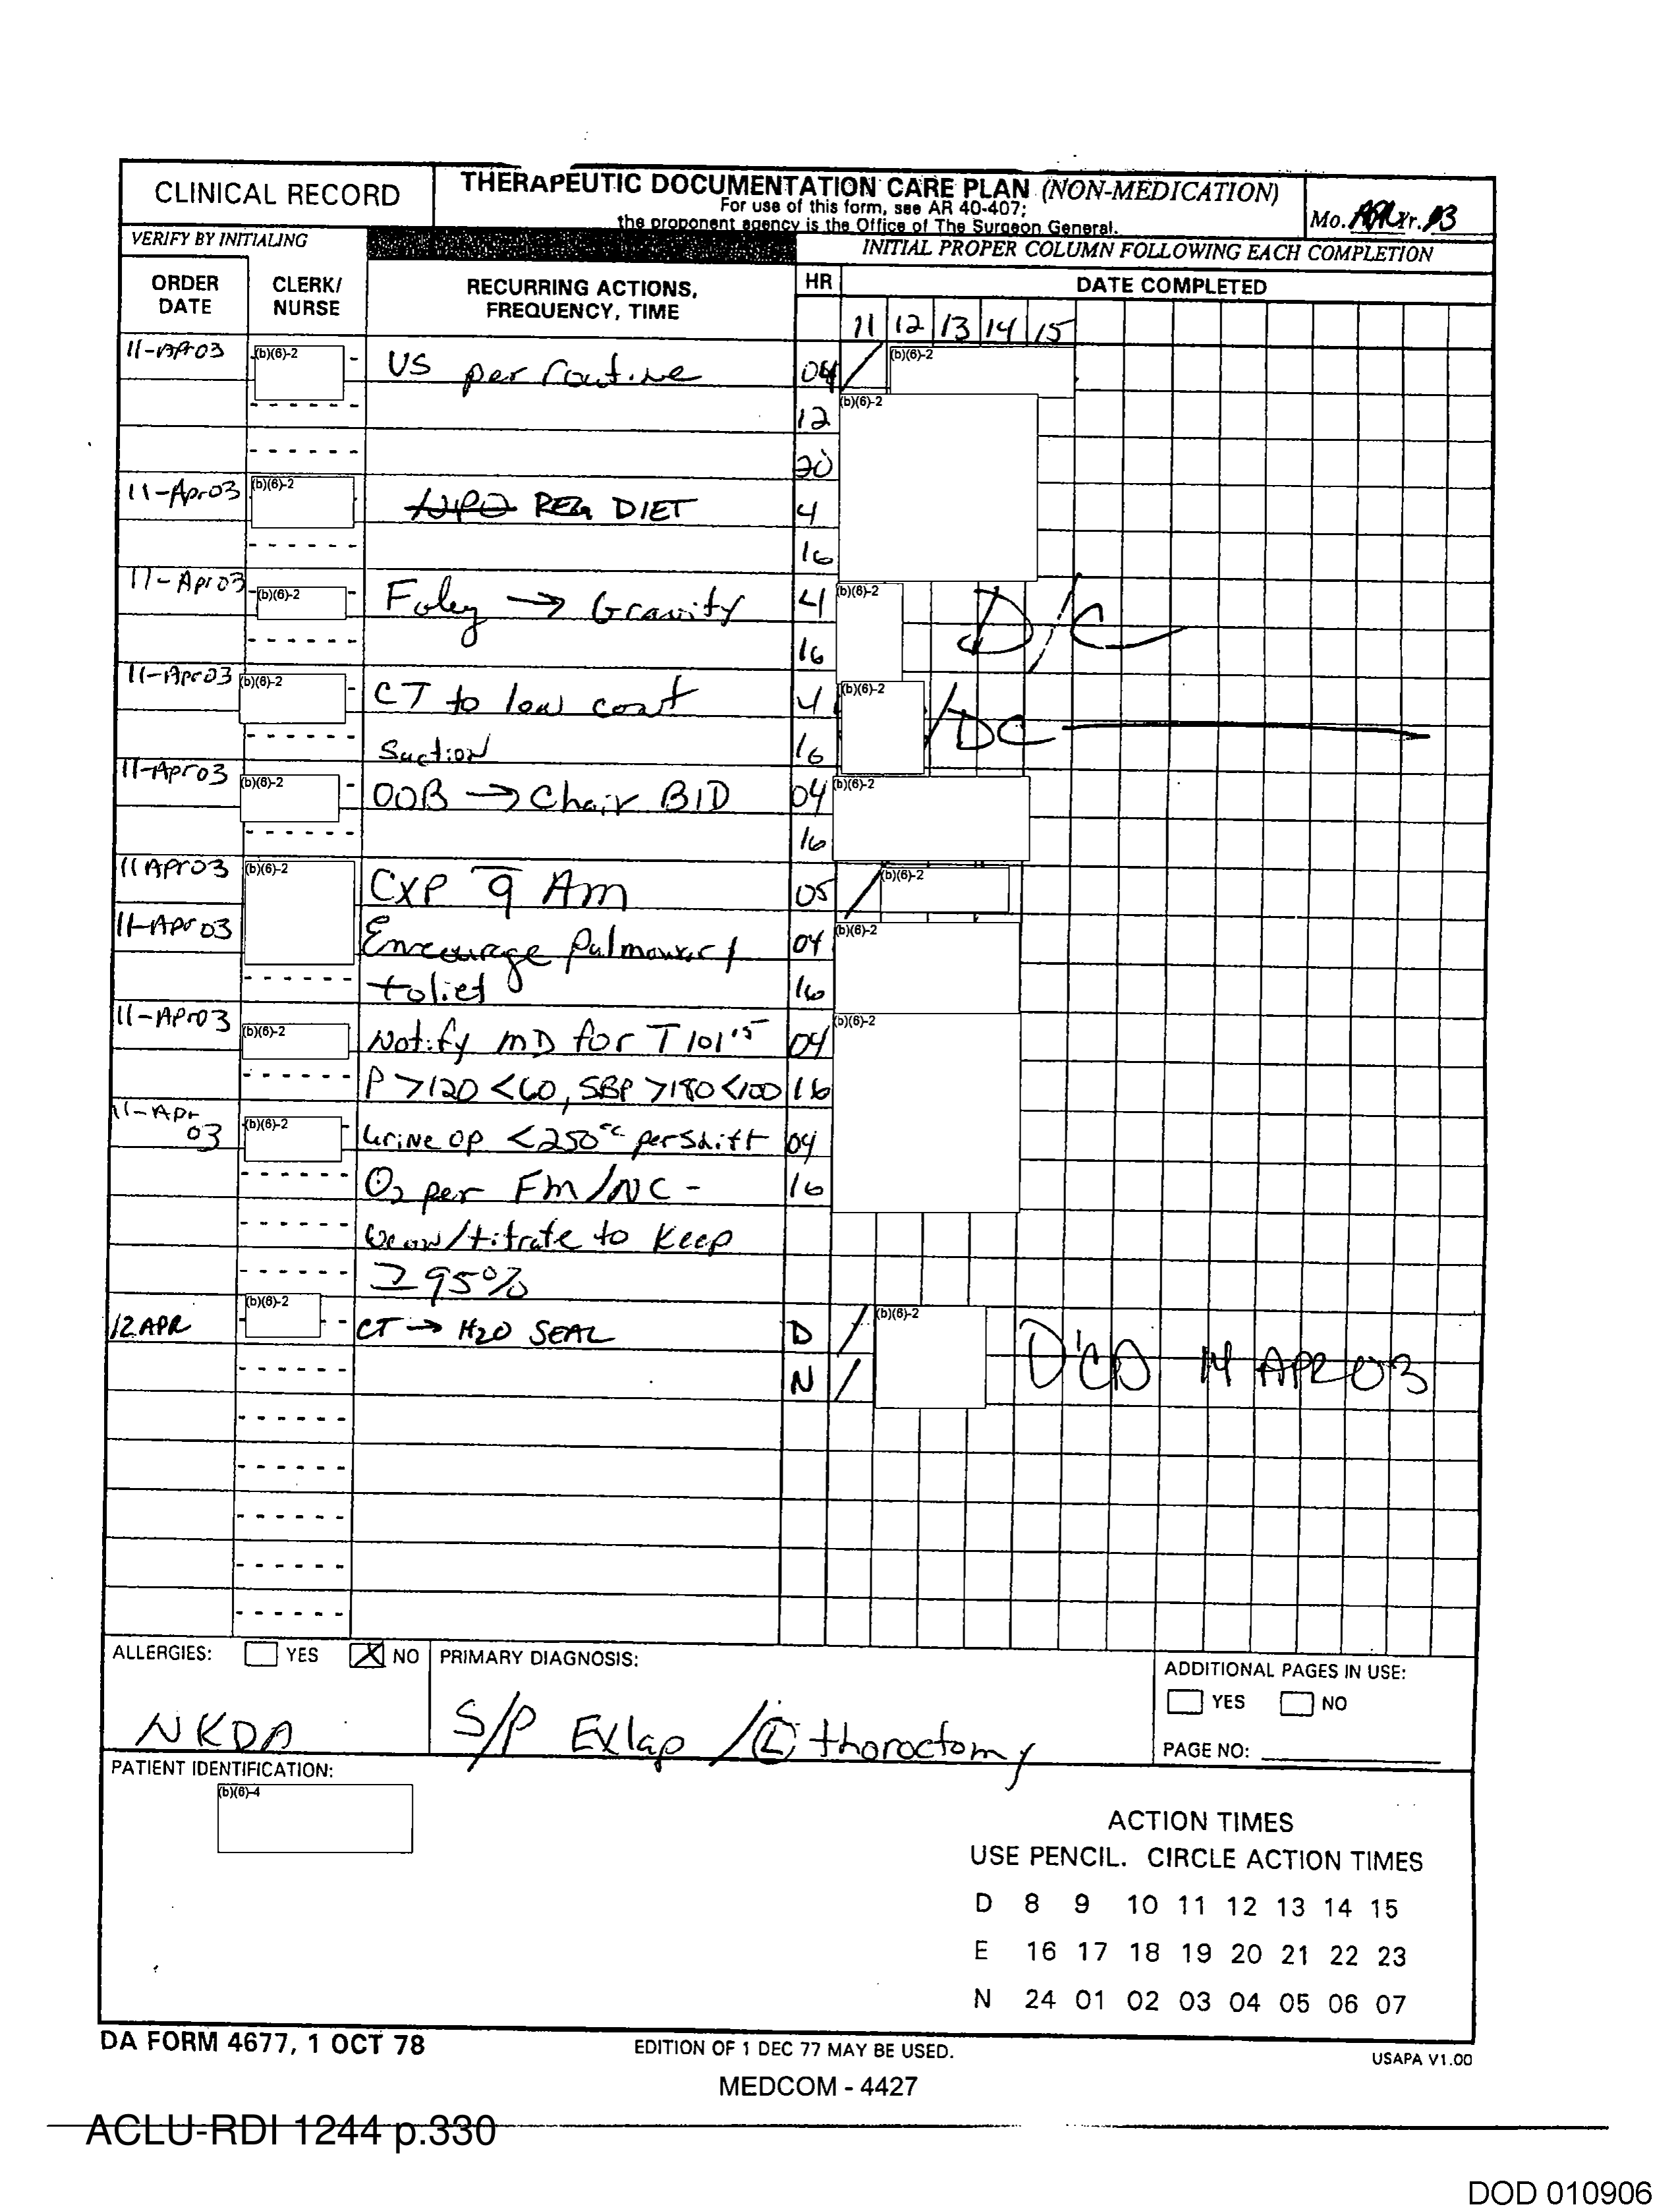 CLINICAL RECORD
THERAPEUTIC DOCUMENTATION CARE PLAN (NON-MEDICATION)
For use of this form, see AR 40-407;
the proponent agency is the Office of The Surgeon General.
Mo. Yr. 03
VERIFY BY INITIALING
INITIAL PROPER COLUMN FOLLOWING EACH COMPLETION
ORDER DATE
CLERK/ NURSE
RECURRING ACTIONS, FREQUENCY, TIME
HR
DATE COMPLETED
11 12 13 14 15
11-Apr03 (b)(6)-2 US per routine 04 (b)(6)-2
12 (b)(6)-2
20
11-Apr03 (b)(6)-2 NPO REG DIET 4
16
11-Apr03 (b)(6)-2 Foley → Gravity 4 (b)(6)-2 D/C
16
11-Apr03 (b)(6)-2 CT to low cont 4 (b)(6)-2 DC
Suction 16
11-Apr03 (b)(6)-2 OOB → Chair BID 04 (b)(6)-2
16
11Apr03 (b)(6)-2 CXP q Am 05 (b)(6)-2
11-Apr03 Encourage Pulmonary 04 (b)(6)-2
toliet 16
11-Apr03 (b)(6)-2 Notify MD for T 101.5 04 (b)(6)-2
P >120 <60, SBP >180 <100 16
11-Apr 03 (b)(6)-2 Urine op <250cc per shift 04
O2 per FM/NC - 16
Wean/titrate to Keep
≥95%
12 APR (b)(6)-2 CT → H2O SEAL D (b)(6)-2 D'CD 14 APR 03
N
ALLERGIES: YES NO
NKDA
PRIMARY DIAGNOSIS:
S/P Exlap /Ⓛ thoroctomy
ADDITIONAL PAGES IN USE:
YES NO
PAGE NO:
PATIENT IDENTIFICATION:
(b)(6)-4
ACTION TIMES
USE PENCIL. CIRCLE ACTION TIMES
D 8 9 10 11 12 13 14 15
E 16 17 18 19 20 21 22 23
N 24 01 02 03 04 05 06 07
DA FORM 4677, 1 OCT 78
EDITION OF 1 DEC 77 MAY BE USED.
USAPA V1.00
MEDCOM - 4427
ACLU-RDI 1244 p.330
DOD 010906